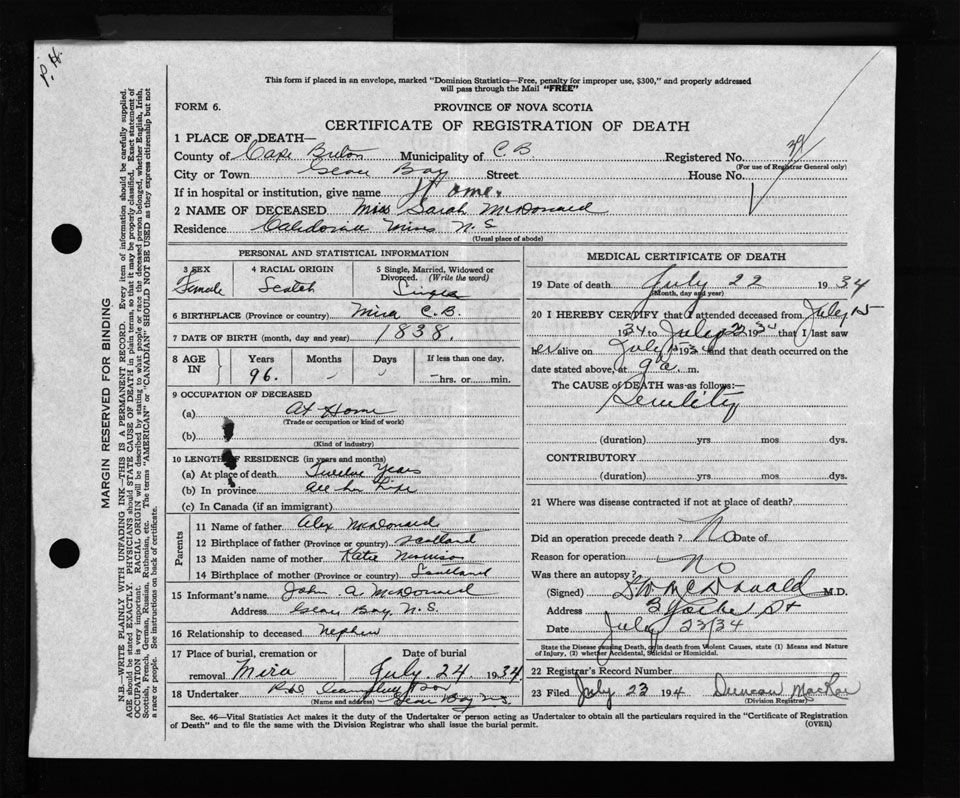 P. H.
This form if placed in an envelope, marked "Dominion Statistics—Free, penalty for improper use, $300," and properly addressed
will pass through the Mail "FREE"
FORM 6.
PROVINCE OF NOVA SCOTIA
CERTIFICATE OF REGISTRATION OF DEATH
1 PLACE OF DEATH—
County of Cape Breton Municipality of C. B. Registered No.
(For use of Registrar General only)
City or Town Glace Bay Street House No.
If in hospital or institution, give name Home
2 NAME OF DECEASED Miss Sarah McDonald
Residence Caledonia Mines N. S
(Usual place of abode)
PERSONAL AND STATISTICAL INFORMATION
3 SEX Female
4 RACIAL ORIGIN Scotch
5 Single, Married, Widowed or Divorced. (Write the word) Single
6 BIRTHPLACE (Province or country) Mira C. B.
7 DATE OF BIRTH (month, day and year) 1838.
8 AGE IN Years 96. Months Days If less than one day. hrs. or min.
9 OCCUPATION OF DECEASED
(a) At Home
(Trade or occupation or kind of work)
(b)
(Kind of industry)
10 LENGTH OF RESIDENCE (in years and months)
(a) At place of death Twelve Years
(b) In province all her Life
(c) In Canada (if an immigrant)
Parents
11 Name of father Alex McDonald
12 Birthplace of father (Province or country) Scotland
13 Maiden name of mother Katie Morrison
14 Birthplace of mother (Province or country) Scotland
15 Informant's name John A. McDonald
Address Glace Bay, N. S.
16 Relationship to deceased nephew
17 Place of burial, cremation or removal Mira
Date of burial July 24 1934
18 Undertaker
(Name and address) Glace Bay N S
MEDICAL CERTIFICATE OF DEATH
19 Date of death July 22 1934
(Month, day and year)
20 I HEREBY CERTIFY that I attended deceased from July 15
1934 to July 22 1934 that I last saw
her alive on July 1934 and that death occurred on the
date stated above, at 9 a. m.
The CAUSE of DEATH was as follows:—
Senility
(duration) yrs mos dys.
CONTRIBUTORY
(duration) yrs mos dys.
21 Where was disease contracted if not at place of death?
Did an operation precede death? No Date of
Reason for operation
Was there an autopsy? No
(Signed) McDonald M.D.
Address St
Date July 23/34
State the Disease causing Death, or in death from Violent Causes, state (1) Means and Nature
of Injury, (2) whether Accidental, Suicidal or Homicidal.
22 Registrar's Record Number
23 Filed July 23 1934 Duncan MacRae
(Division Registrar)
Sec. 46—Vital Statistics Act makes it the duty of the Undertaker or person acting as Undertaker to obtain all the particulars required in the "Certificate of Registration
of Death" and to file the same with the Division Registrar who shall issue the burial permit. (OVER)
MARGIN RESERVED FOR BINDING
N.B.—WRITE PLAINLY WITH UNFADING INK—THIS IS A PERMANENT RECORD. Every item of information should be carefully supplied.
AGE should be stated EXACTLY. PHYSICIANS should STATE CAUSE OF DEATH in plain terms, so that it may be properly classified. Exact statement of
OCCUPATION is very important. RACIAL ORIGIN will be described by stating to what people or race the deceased person belonged, whether English, Irish,
Scottish, French, German, Russian, Ruthenian, etc. The terms "AMERICAN" or "CANADIAN" SHOULD NOT BE USED as they express citizenship but not
a race or people. See instructions on back of certificate.